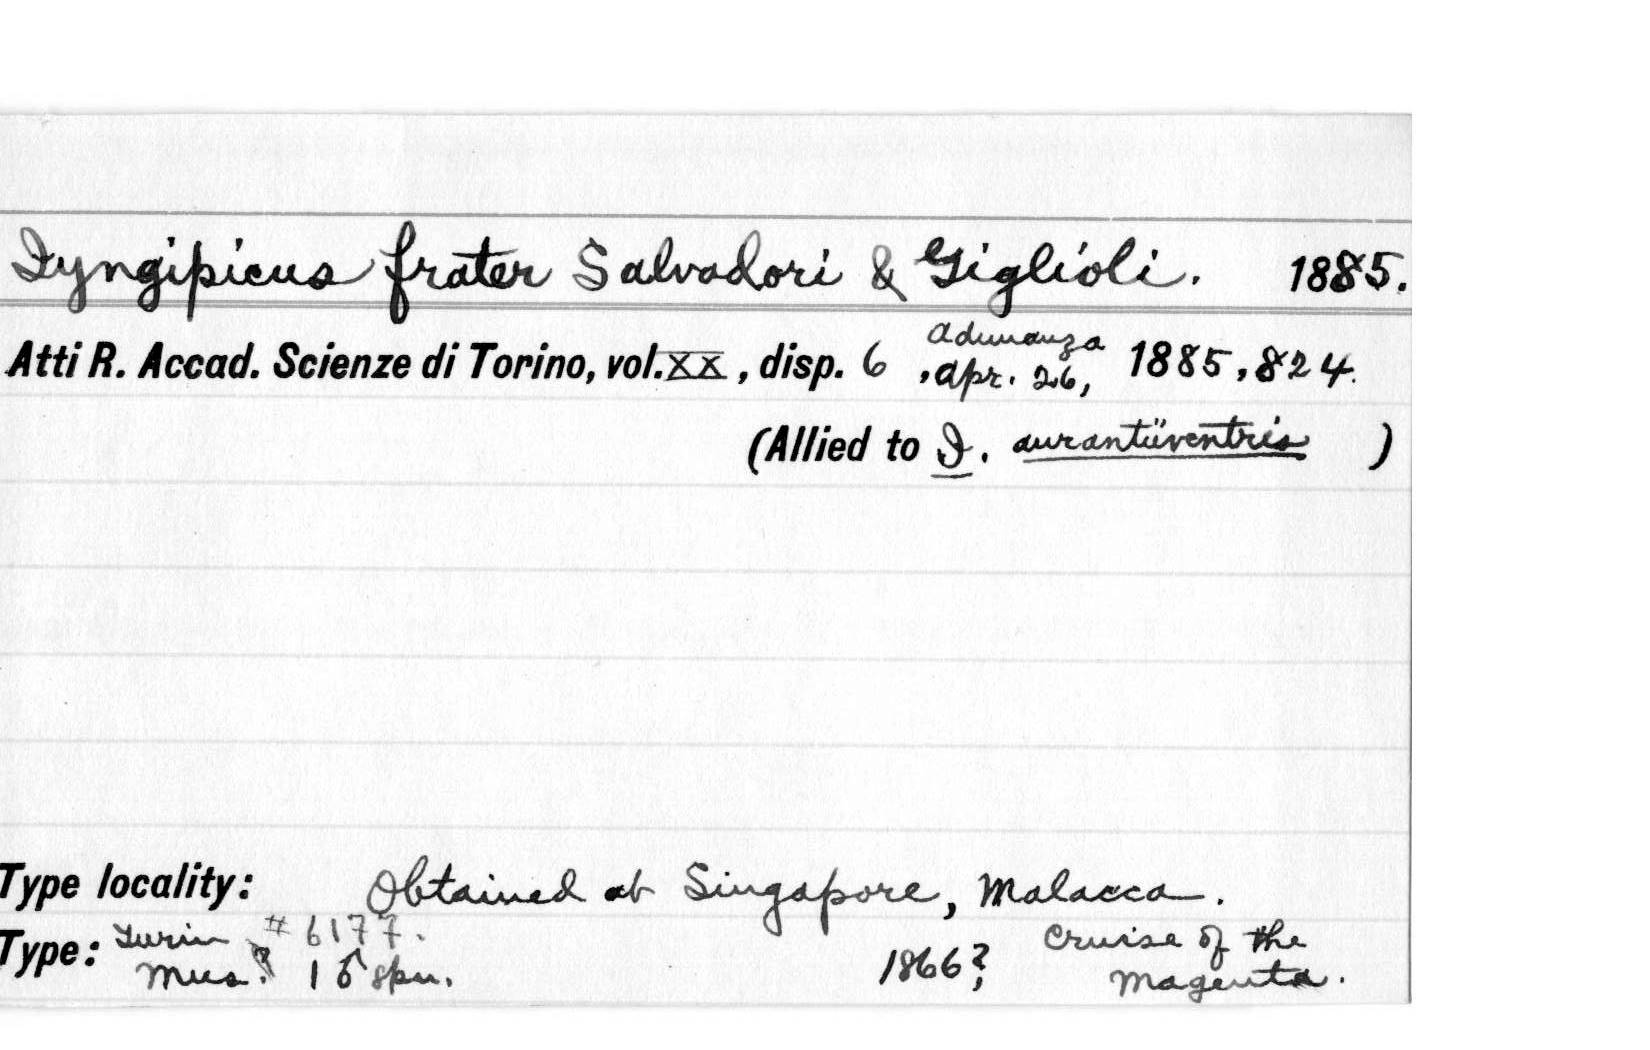 Iyngipicus frater Salvadori & Giglioli. 1885.
Atti R. Accad. Scienze di Torino, vol. XX, disp. 6, Adunanza Apr. 26, 1885, 824.
(Allied to I. aurantiiventris)
Type locality: Obtained at Singapore, Malacca.
Type: Turin Mus.? #6177. 1 ♂ spn. 1866?, Cruise of the Magenta.